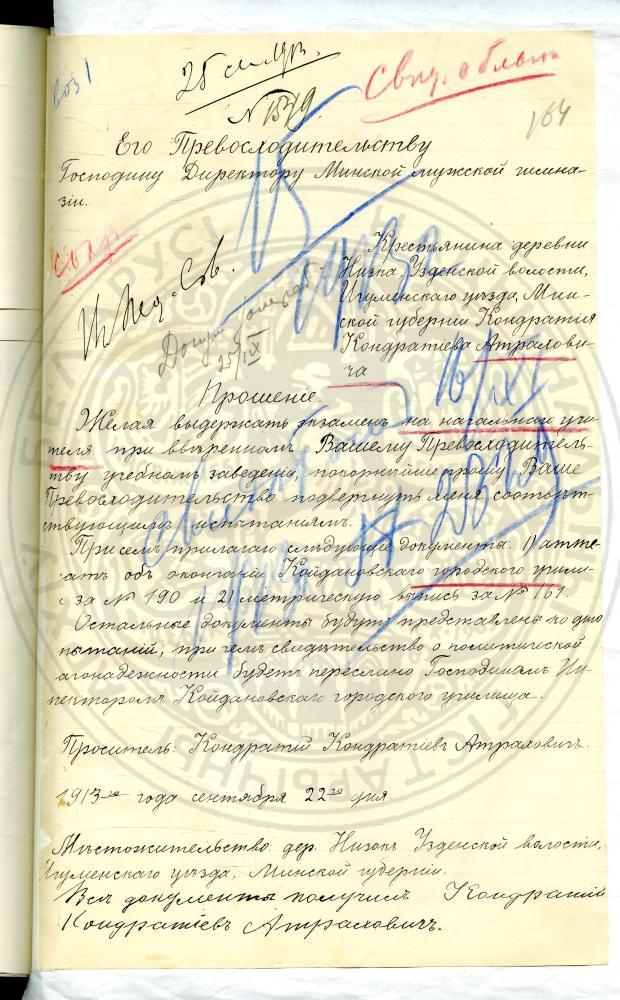 25 сентр.
Свид. о благон
воз 1
№ 1579.
164
Его Превосходительству
Господину Директору Минской мужской гимна-
зіи.
Крестьянина деревни
Низка, Узденской волости,
Игуменскаго уѣзда, Мин-
ской губерніи Кондратія
Кондратіева Атрахови-
ча
Пед. Сов.
25/IX
16/IX
Прошеніе.
Желая выдержать экзаменъ на начальнаго учи-
теля при ввѣренномъ Вашему Превосходитель-
ству учебномъ заведеніи, покорнѣйше прошу Ваше
Превосходительство подвергнуть меня соотвѣт-
ствующимъ испытаніямъ.
При семъ прилагаю слѣдующіе документы: 1) атте-
атъ объ окончаніи Койдановскаго городского учили-
за № 190 и 2) метрическую выпись за № 161.
Остальные документы будутъ представлены ко дню
пытаній, при чемъ свидѣтельство о политической
агонадежности будетъ переслано Господиномъ Ин-
пекторомъ Койдановскаго городского училища.
Проситель: Кондратій Кондратіевъ Атраховичъ.
1913-го года сентября 22-го дня
Мѣстожительство: дер. Низокъ Узденской волости,
Игуменскаго уѣзда, Минской губерніи.
Всѣ документы получилъ Кондратій
Кондратіевъ Атраховичъ.